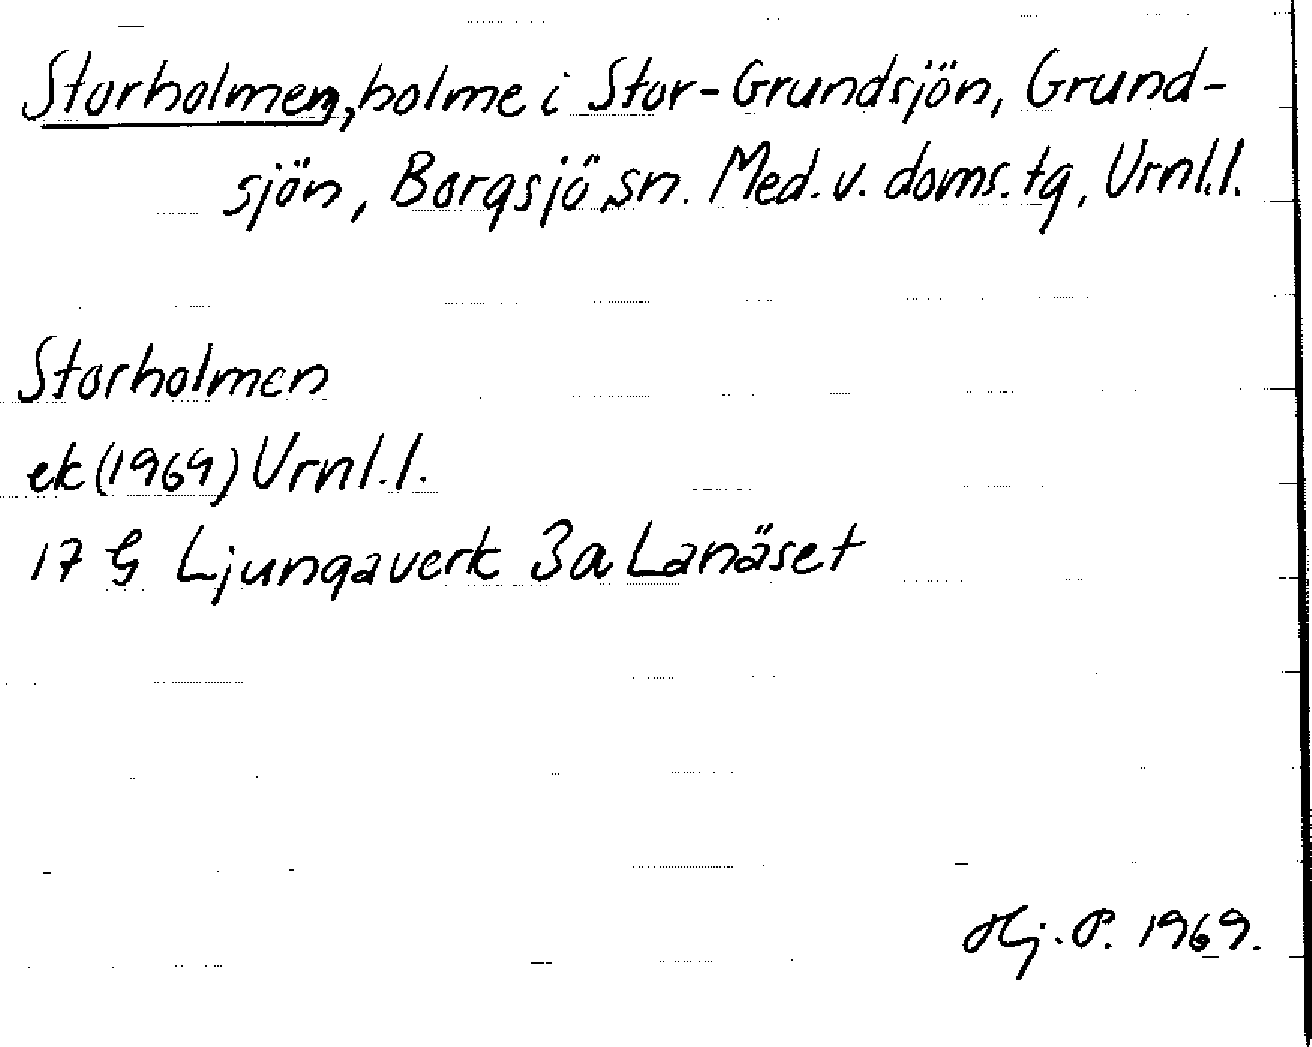 Storholmen, holme i Stor-Grundsjön, Grund-
sjön, Borgsjö sn. Med. v. doms. tg, Vrnl.l.
Storholmen
ek (1969) Vrnl.l.
17 G Ljungaverk 3a Lanäset
Hj. P. 1969.